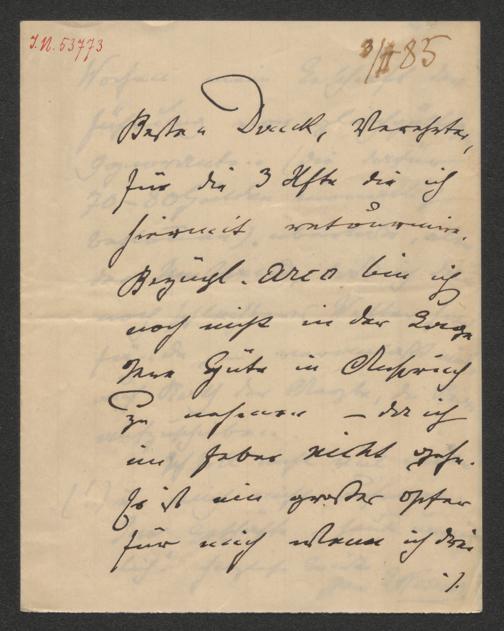 I.N. 53773
3/II 85
Besten Danck, Verehrter,
für die 3 Hfte die ich
hiermit retournire.
Bezügl. Arco bin ich
noch nicht in der Lage
Ihre Güte in Anspruch
zu nehmen – da ich
im Feber nicht gehe.
Es ist ein großes Opfer
für mich wenn ich drei
./.